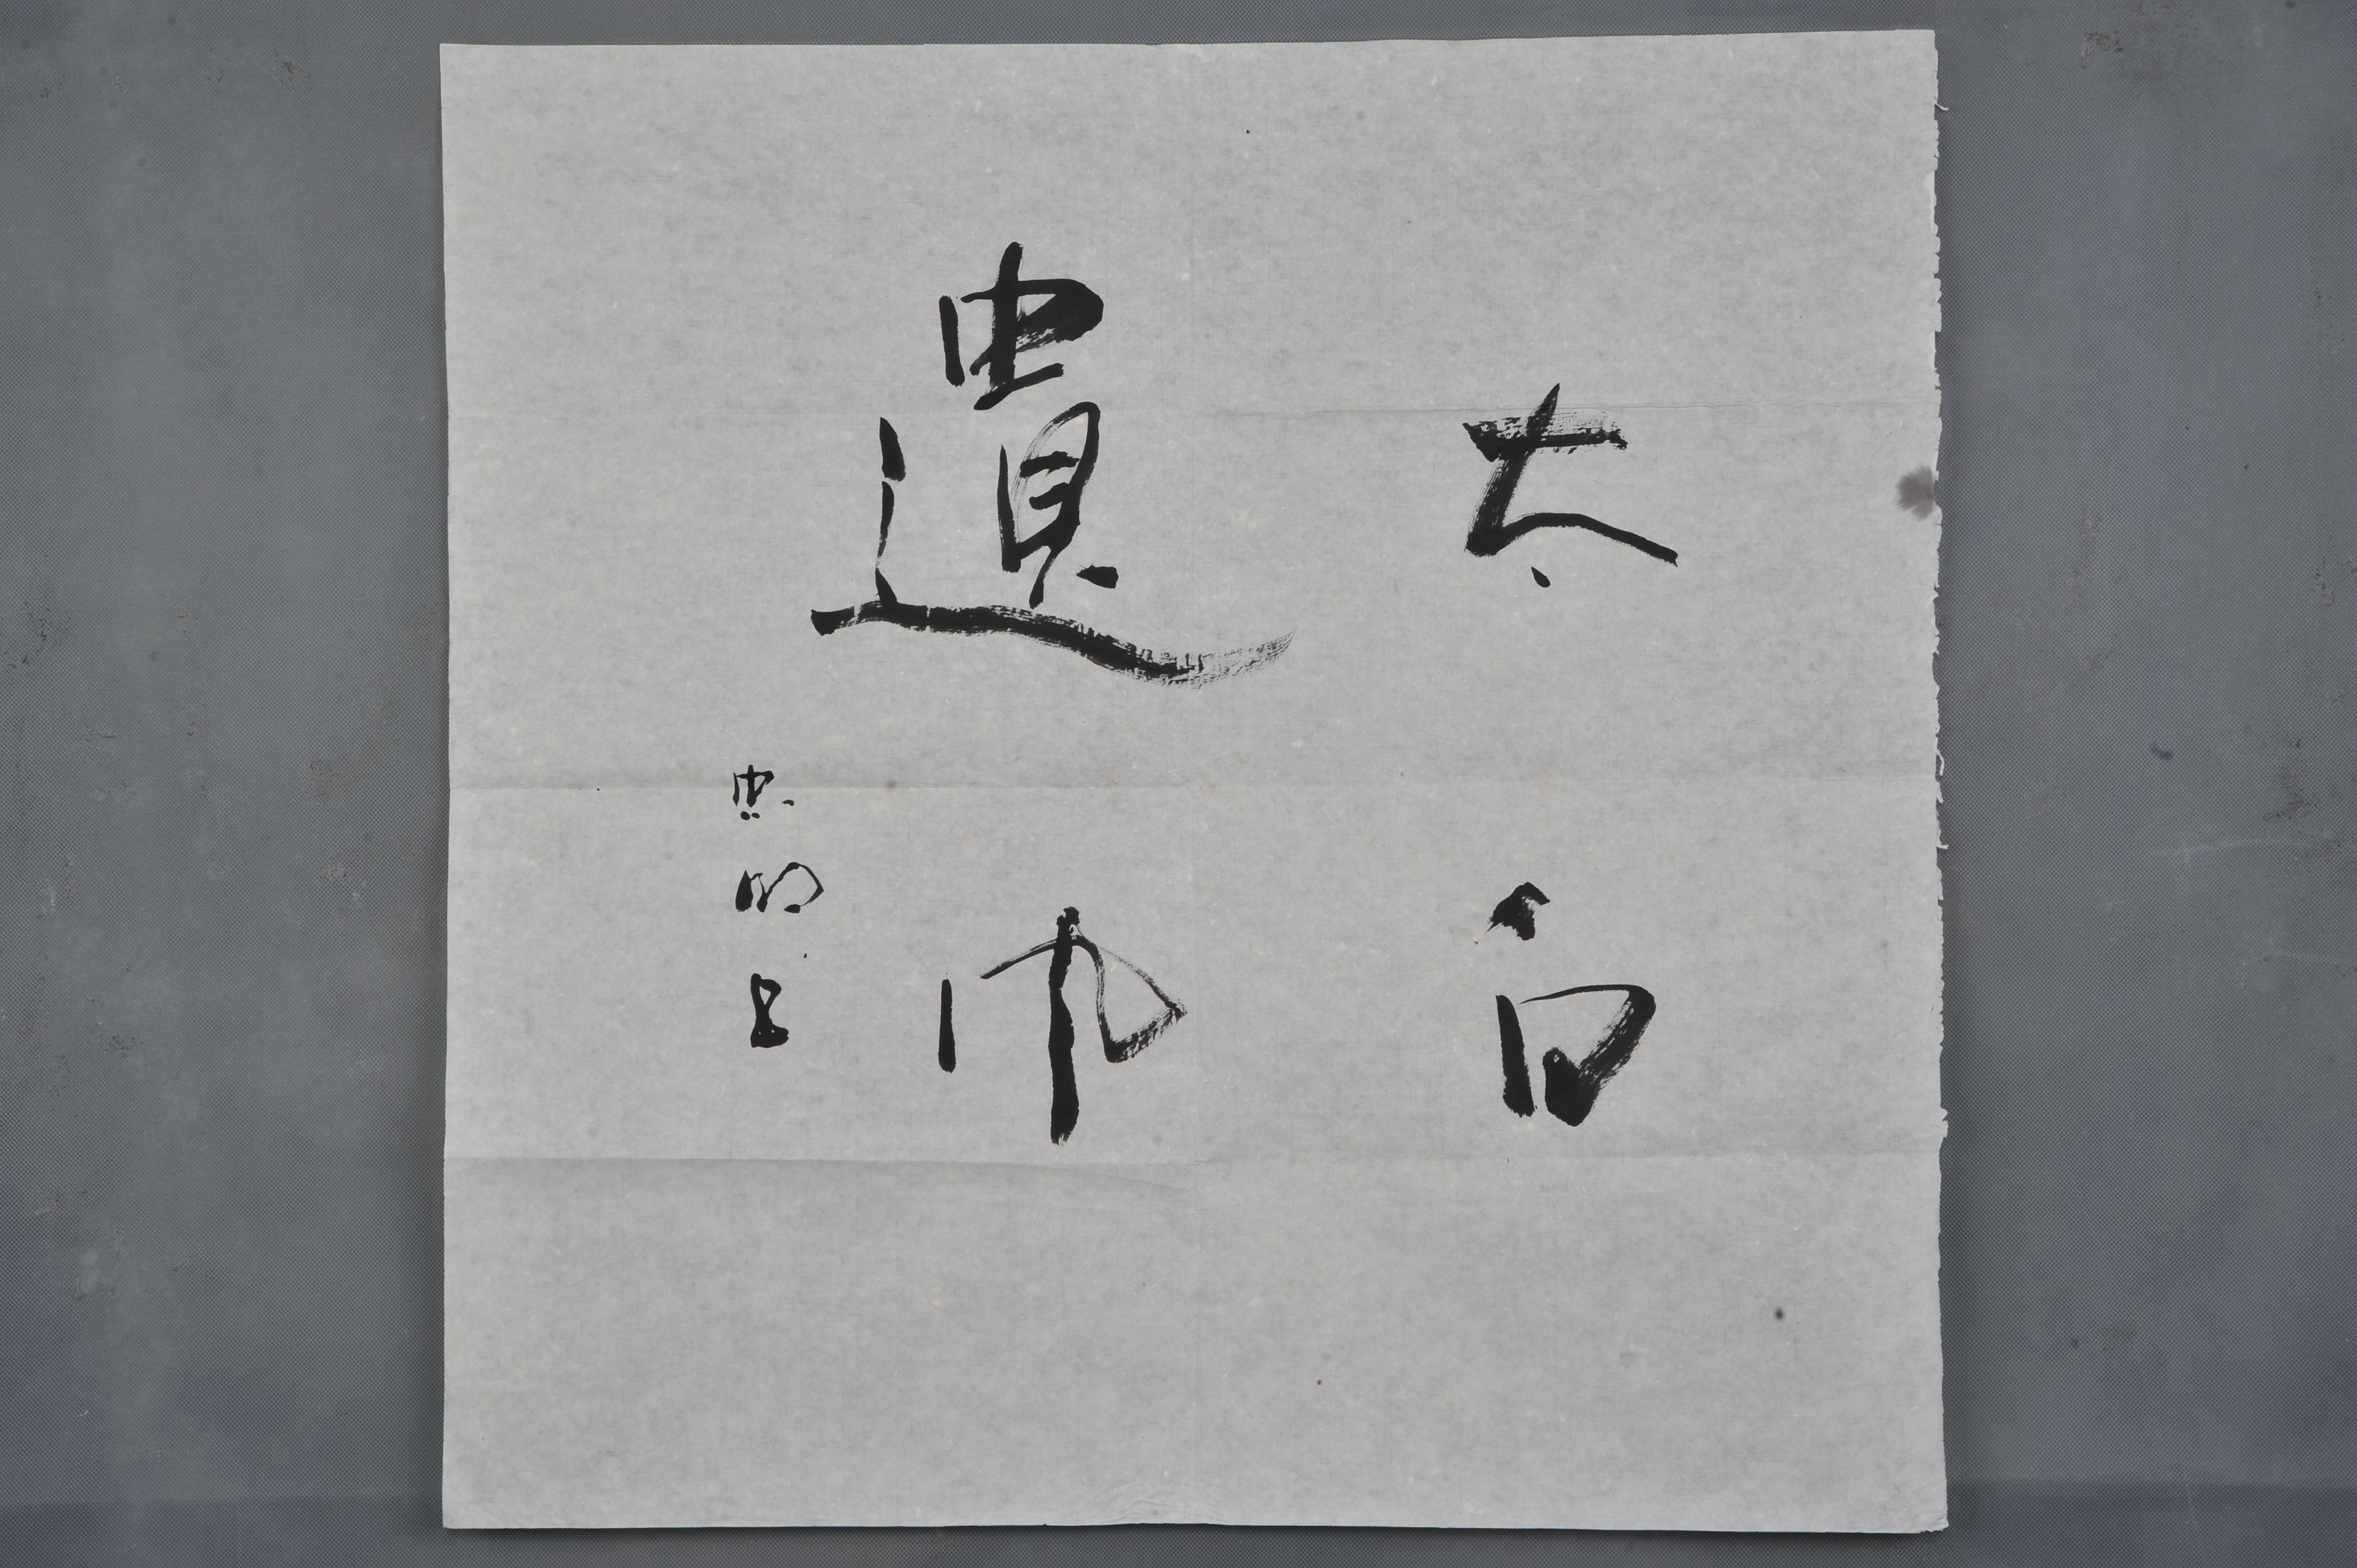 太白
遺風
忠明书